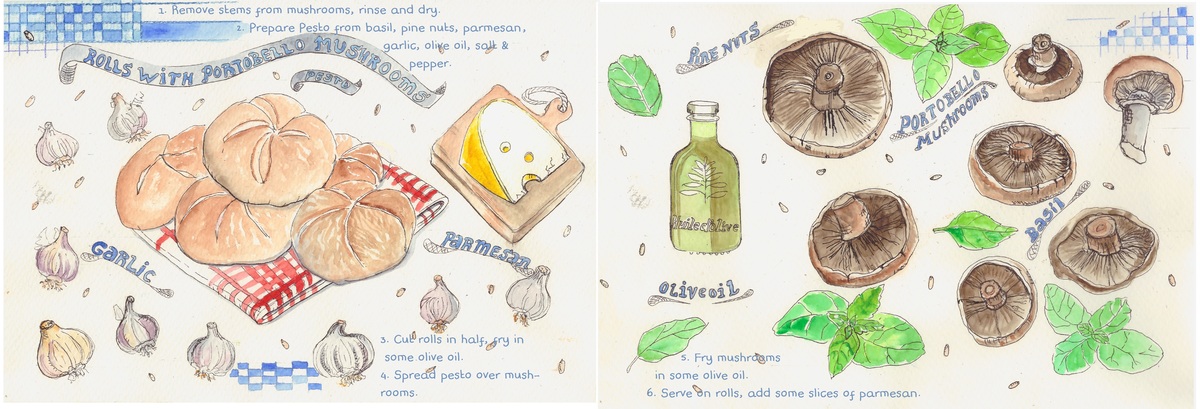 1. Remove stems from mushrooms, rinse and dry.
2. Prepare Pesto from basil, pine nuts, parmesan,
garlic, olive oil, salt &
pepper.
ROLLS WITH PORTOBELLO MUSHROOMS
PESTO
GARLIC
PARMESAN
3. Cut rolls in half, fry in
some olive oil.
4. Spread pesto over mush-
rooms.
PINE NUTS
PORTOBELLO
MUSHROOMS
Huile d'olive
BASIL
OLIVE OIL
5. Fry mushrooms
in some olive oil.
6. Serve on rolls, add some slices of parmesan.